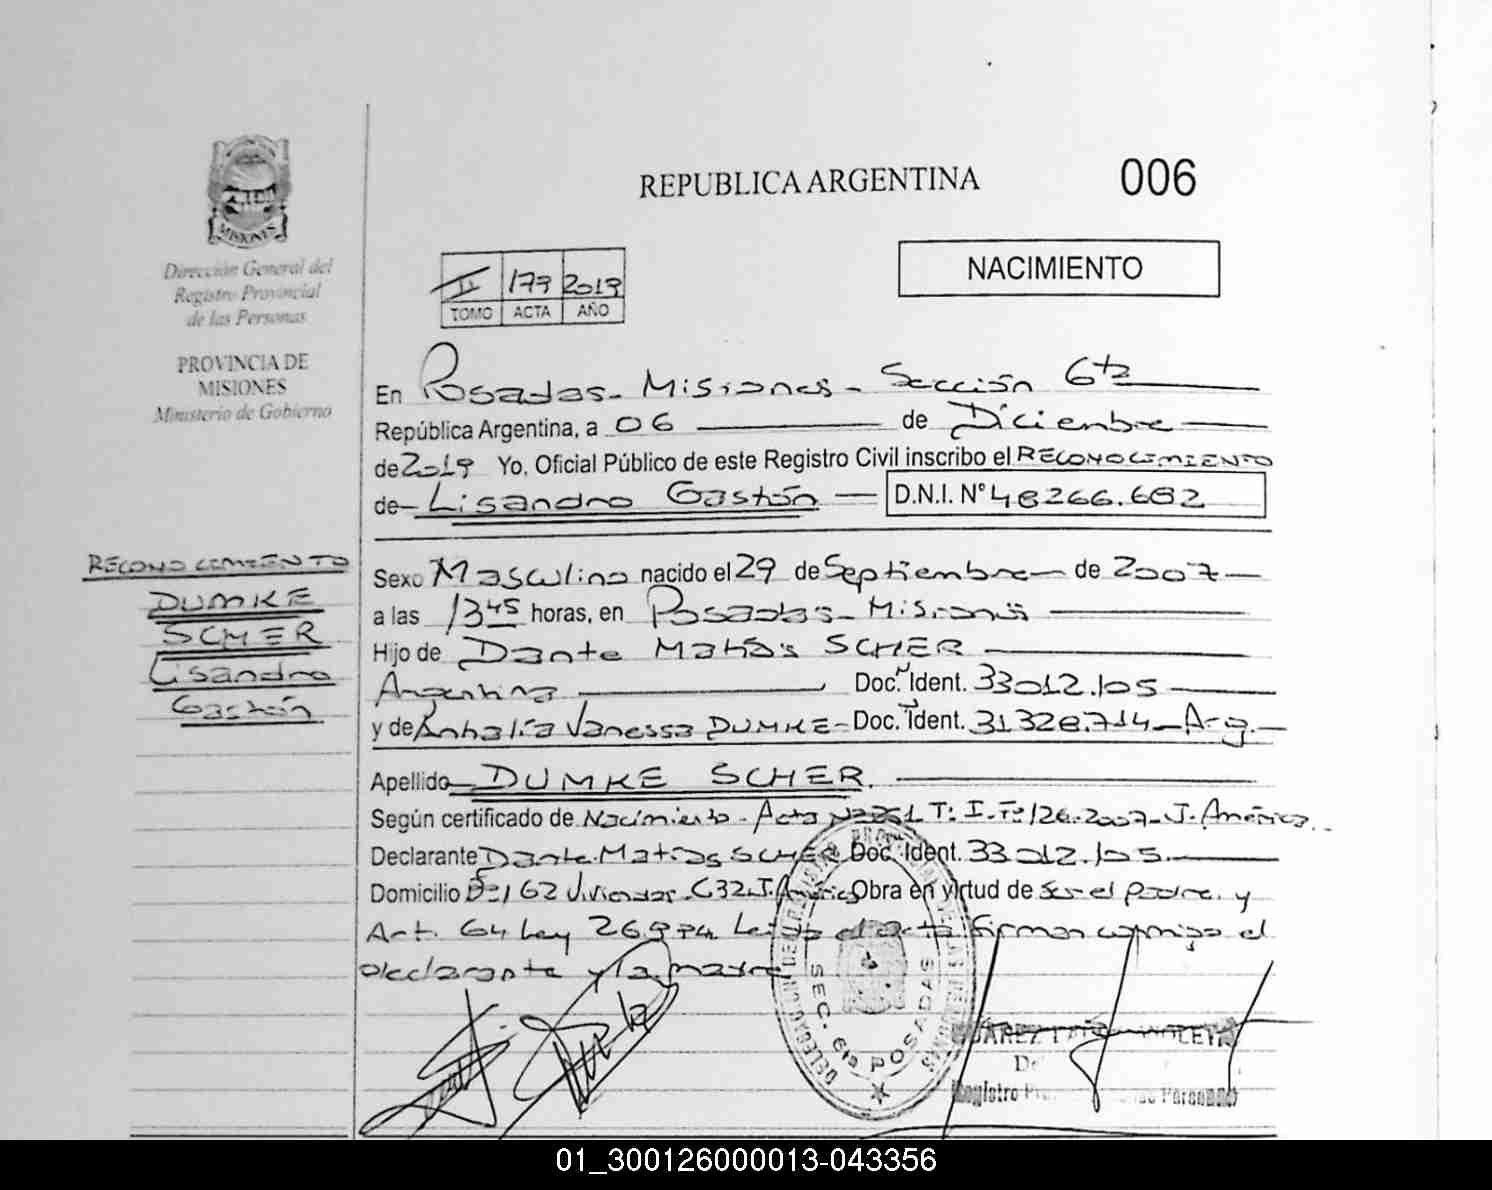 REPUBLICA ARGENTINA
006
MISIONES
Dirección General del
Registro Provincial
de las Personas
PROVINCIA DE
MISIONES
Ministerio de Gobierno
NACIMIENTO
II 179 2019
TOMO ACTA AÑO
En Posadas - Misiones - Sección 6ta
República Argentina, a 06 de Diciembre
de 2019 Yo, Oficial Público de este Registro Civil inscribo el RECONOCIMIENTO
de Lisandro Gastón D.N.I. N° 48266.682
RECONOCIMIENTO
DUMKE
SCHER
Lisandro
Gastón
Sexo Masculino nacido el 29 de Septiembre de 2007
a las 13 45 horas, en Posadas - Misiones
Hijo de Dante Matías SCHER
Argentina Doc. Ident. 33012.105
y de Vanessa DUMKE - Doc. Ident. 31328.714 - Arg.
Apellido DUMKE SCHER.
Según certificado de Nacimiento - Acta T: I. F: 126. 2007 - J. América.
Declarante Dante Matías SCHER Doc. Ident. 33 012.105.
Domicilio 162 Viviendas C32 J. América Obra en virtud de ser el padre. y
Art. 64 Ley 26.994 Leída el acta firman conmigo el
declarante y la madre
SEC. 6ta POSADAS